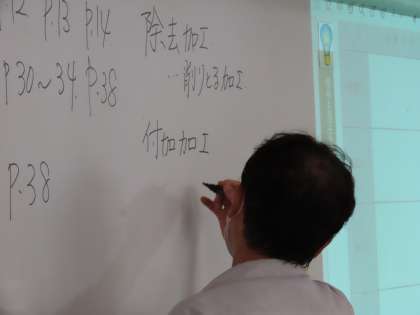 .12 P.13 P.14
P.30~34. P.38
P.38
除去加工
…削りとる加工
付加加工